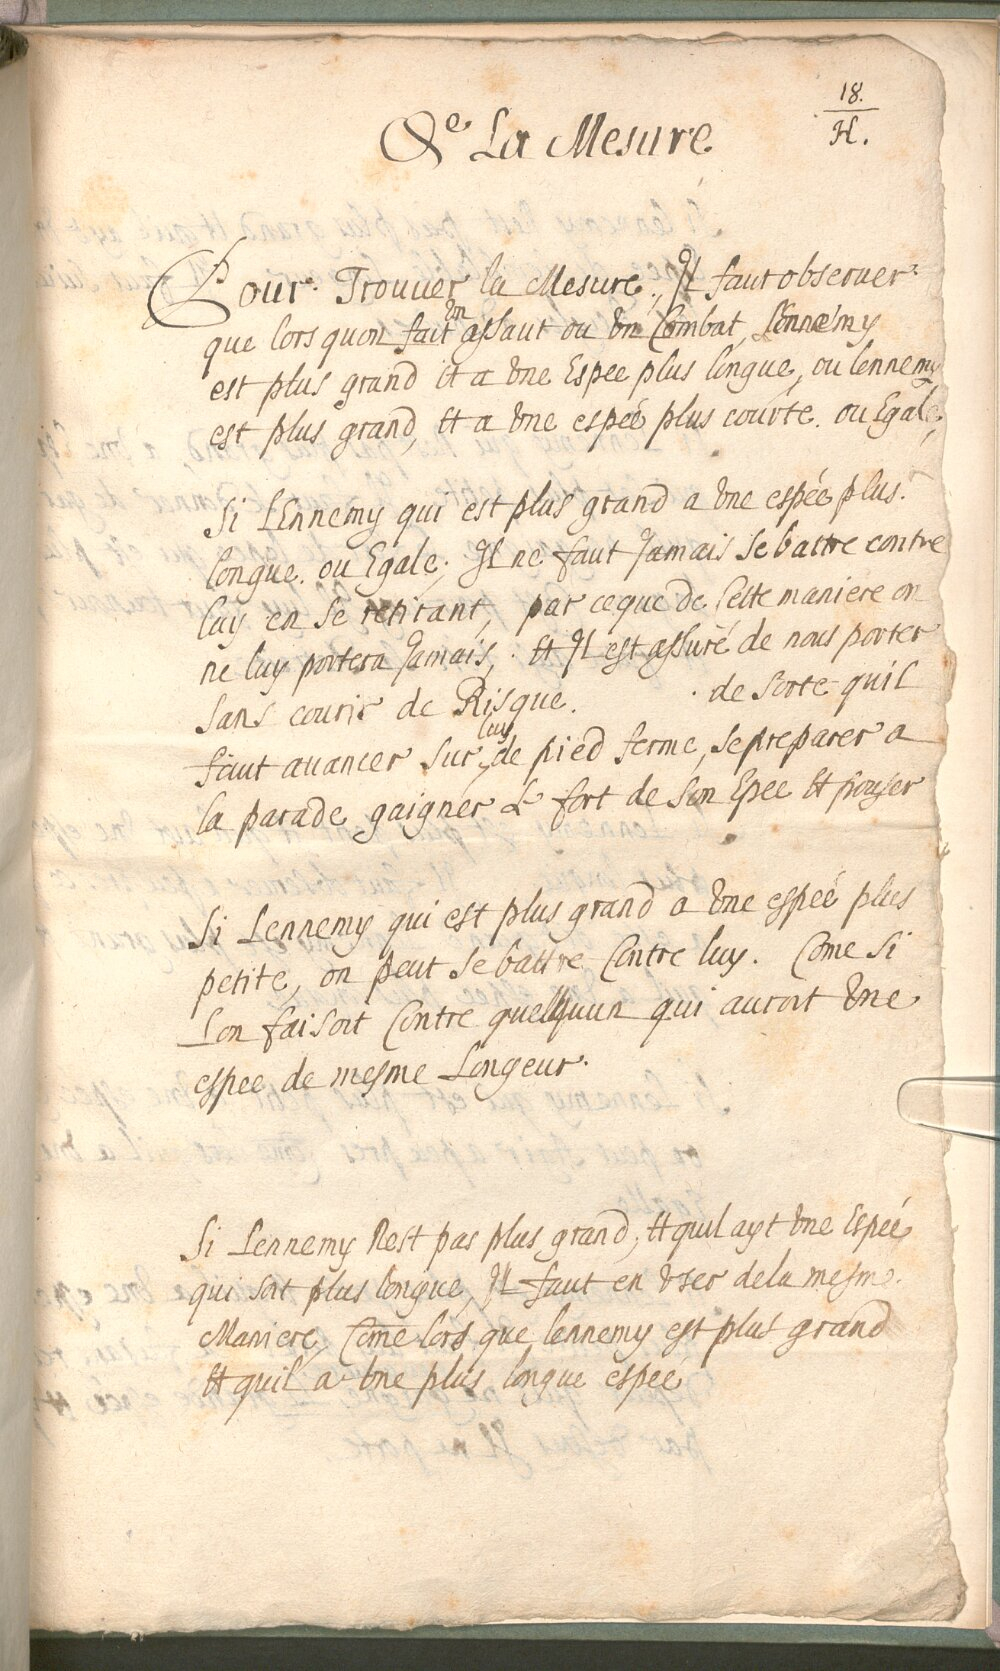 18.
H.
De La Mesure
Pour Trouuer la Mesure, Il faut observer
que lors quon fait vn assaut ou vn Combat, Lennemy
est plus grand et a vne Espee plus longue, ou lennemy
est plus grand, Et a vne espeé plus courte. ou Egale,
Si LEnnemy qui est plus grand a vne espeé plus
longue. ou Egale, Il ne faut Jamais se battre contre
luy en se retirant, par ceque de Cette maniere on
ne luy portera Jamais, Et Il est assuré de nous porter
sans courir de Risque. de sorte quil
faut auancer sur luy de pied ferme, se preparer a
la parade gaigner Le fort de son Epee Et pousser
Si Lennemy qui est plus grand a vne espeé plus
petite, on peut se battre Contre luy. Come si
Lon faisoit Contre quelquun qui auroit vne
espee de mesme Longeur.
Si Lennemy Nest pas plus grand, Et quil ayt vne Espeé
qui soit plus longue, Il faut en vser de la mesme
Maniere, Come lors que lennemy est plus grand
Et quil a vne plus longue espeé